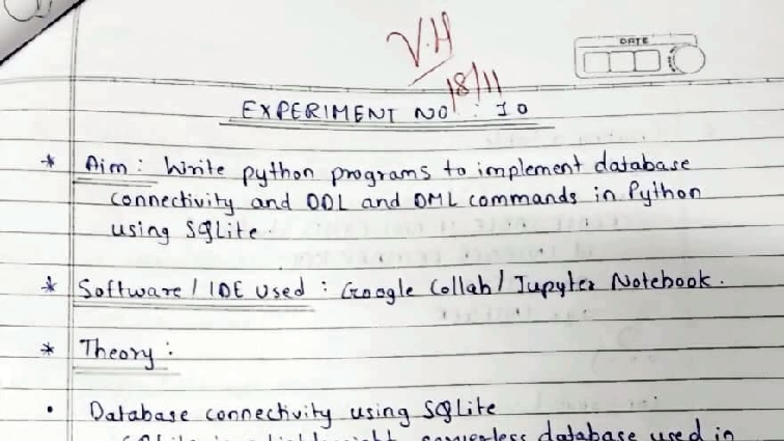 V.H
18/11
DATE
EXPERIMENT NO : 10
* Aim : Write python programs to implement database
connectivity and DDL and DML commands in Python
using SQLite.
* Software / IDE Used : Google Collab / Jupyter Notebook.
* Theory :
• Database connectivity using SQLite
SQLite is a lightweight, serverless database used in